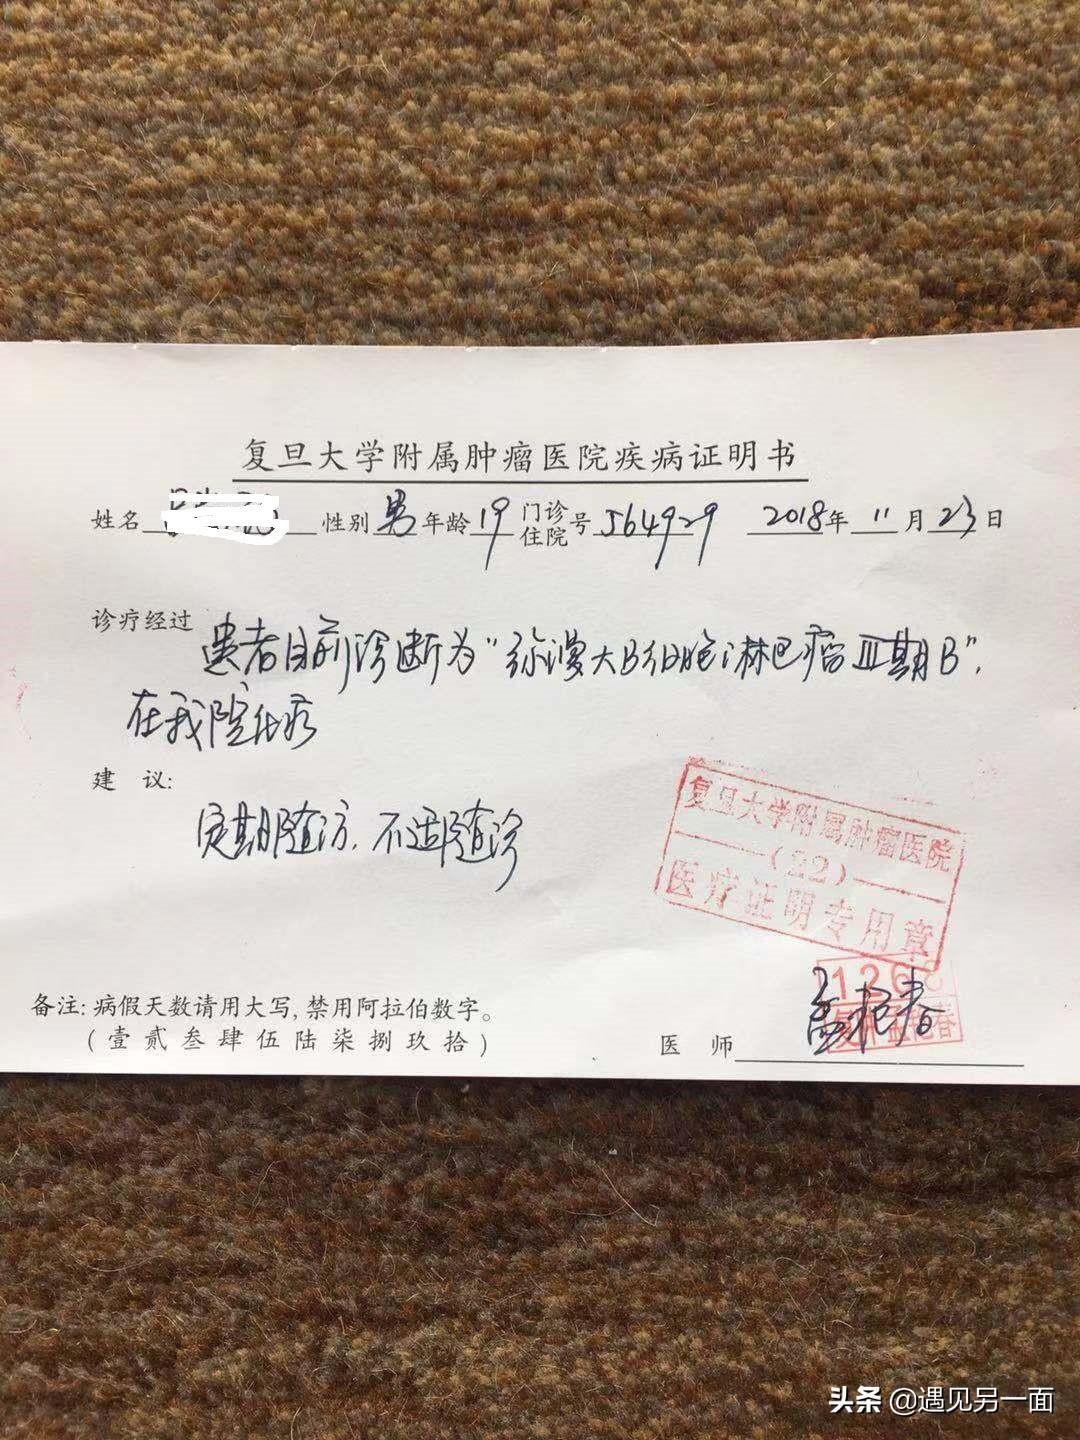 复旦大学附属肿瘤医院疾病证明书
姓名 性别 男 年龄 19 门诊住院号 564929 2018年 11月 23日
诊疗经过 患者目前诊断为“弥漫大B细胞淋巴瘤Ⅲ期B”,
在我院治疗
建 议:
定期随访, 不适随诊
复旦大学附属肿瘤医院
(22)
医疗证明专用章
126
备注: 病假天数请用大写, 禁用阿拉伯数字。
(壹贰叁肆伍陆柒捌玖拾)
医 师
头条 @遇见另一面